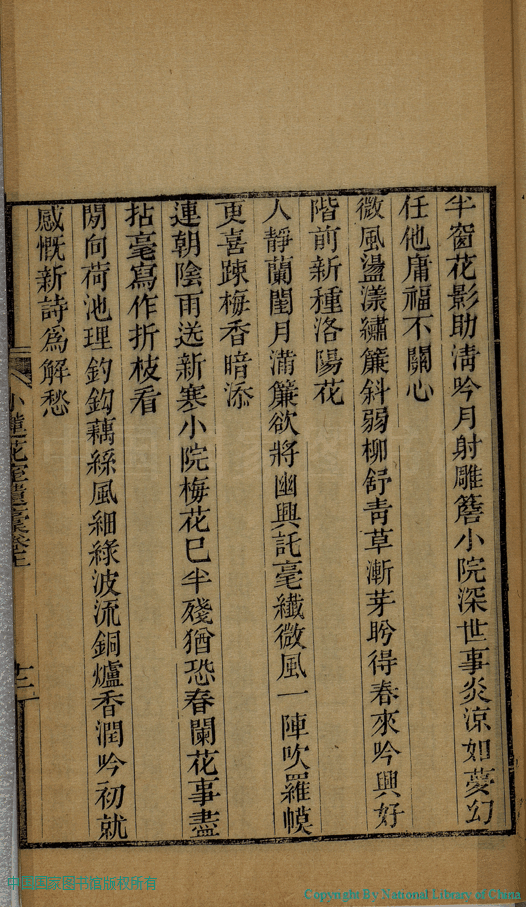 半窗花影助清吟月射雕簷小院深世事炎涼如夢幻
任他庸福不關心
微風盪漾繡簾斜弱柳舒青草漸芽盻得春來吟興好
階前新種洛陽花
人靜蘭閨月滿簾欲將幽興託毫纖微風一陣吹羅幙
更喜踈梅香暗添
連朝陰雨送新寒小院梅花巳半殘猶恐春闌花事盡
拈毫寫作折枝看
閒向荷池理釣鈎藕絲風細綠波流銅爐香潤吟初就
感慨新詩爲解愁
小蓮花室遺稾卷上
十二
中国国家图书馆版权所有
Copyright By National Library of China